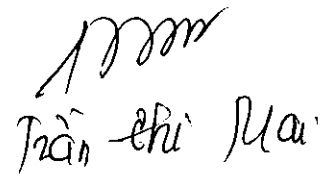 Trần Chi Mai